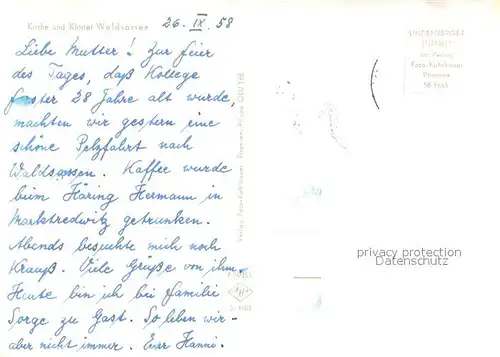 Kirche und Kloster Waldsassen
26. IX. 58
Liebe Mutter! Zur Feier
des Tages, daß Kollege
Forster 28 Jahre alt wurde,
machten wir gestern eine
schöne Pelzfahrt nach
Waldsassen. Kaffee wurde
beim Häring Hermann in
Marktredwitz getrunken.
Abends besuchte mich noch
Krauß. Viele Grüße von ihm.
Heute bin ich bei Familie
Sorge zu Gast. So leben wir -
aber nicht immer. Euer Hanni.
privacy protection
Datenschutz